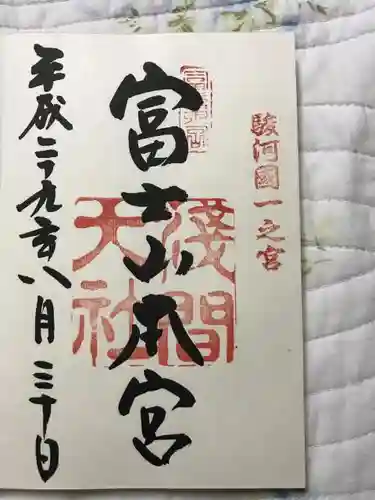 駿河國一之宮
富士山本宮
淺間大社
平成二十九年八月三十日